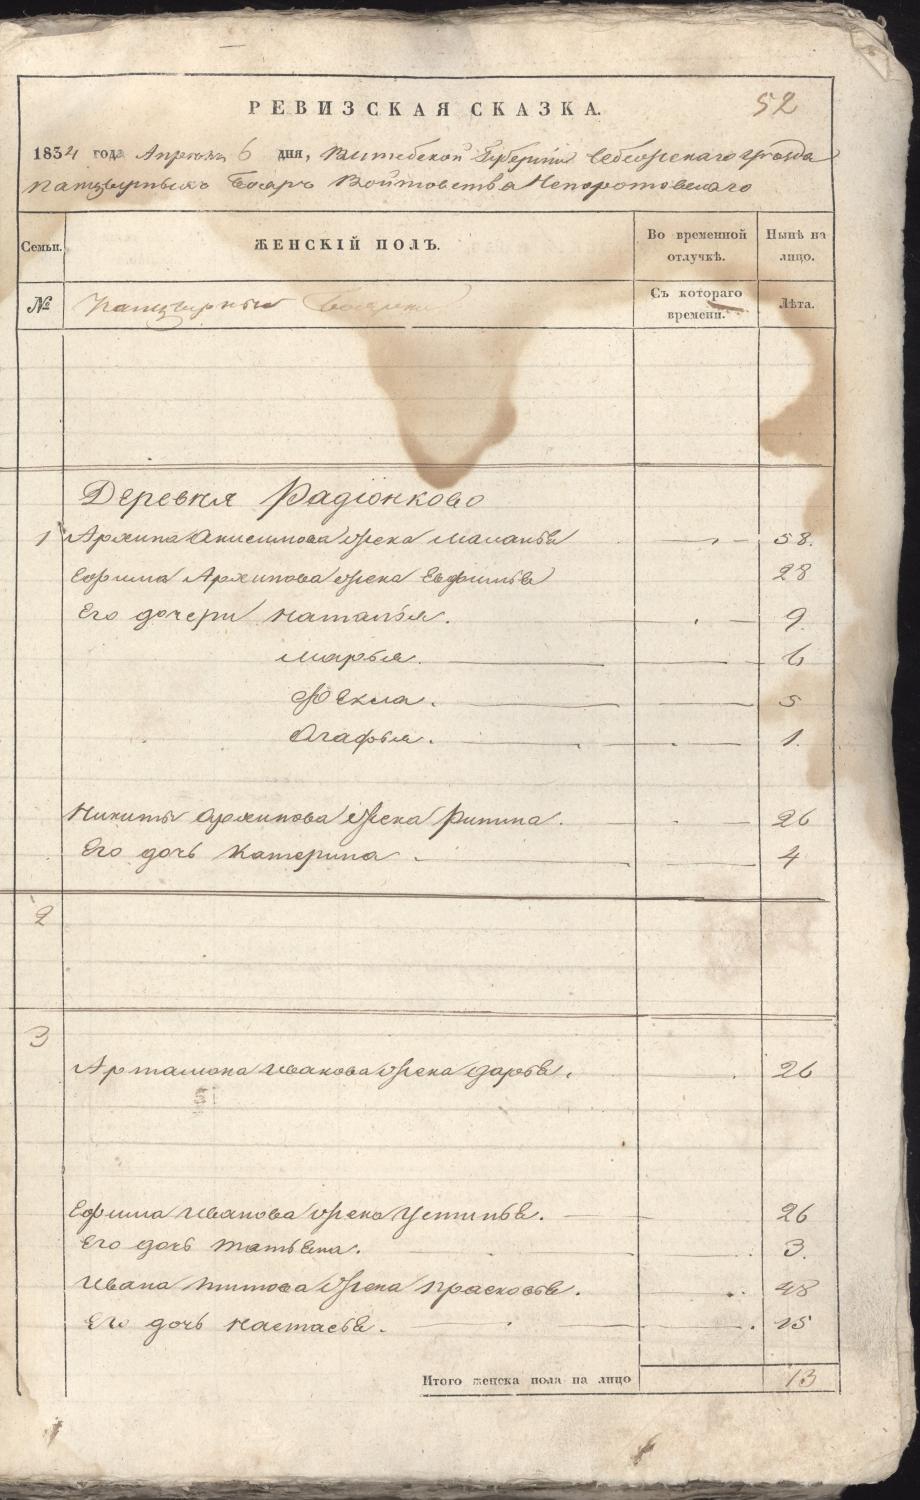 52
РЕВИЗСКАЯ СКАЗКА.
1834 года Апреля 6 дня, Витебской Губернии Себежскаго уезда
Панцырныхъ Бояръ Войтовства Непоротовскаго
Семьи. ЖЕНСКІЙ ПОЛЪ. Во временной отлучкѣ. Нынѣ на лицо.
№ Панцырныи Бояре Съ котораго времени. Лѣта.
Деревня Радіонково
1 Архипа Анисимова жена Маланья 58.
Ефима Архипова жена Евфимья 28
Его дочери Наталья. 9
Марья. 6
Фекла. 5
Агафья. 1.
Никиты Архипова жена Рипина. 26
Его дочь Катерина 4
2
3
Арталиона Иванова жена Дарья. 26
Ефима Иванова жена Устинья. 26
Его дочь Татьяна. 3.
Ивана Титова жена Прасковья. 48
Его дочь Настасья. 15
Итого женска пола на лицо 13